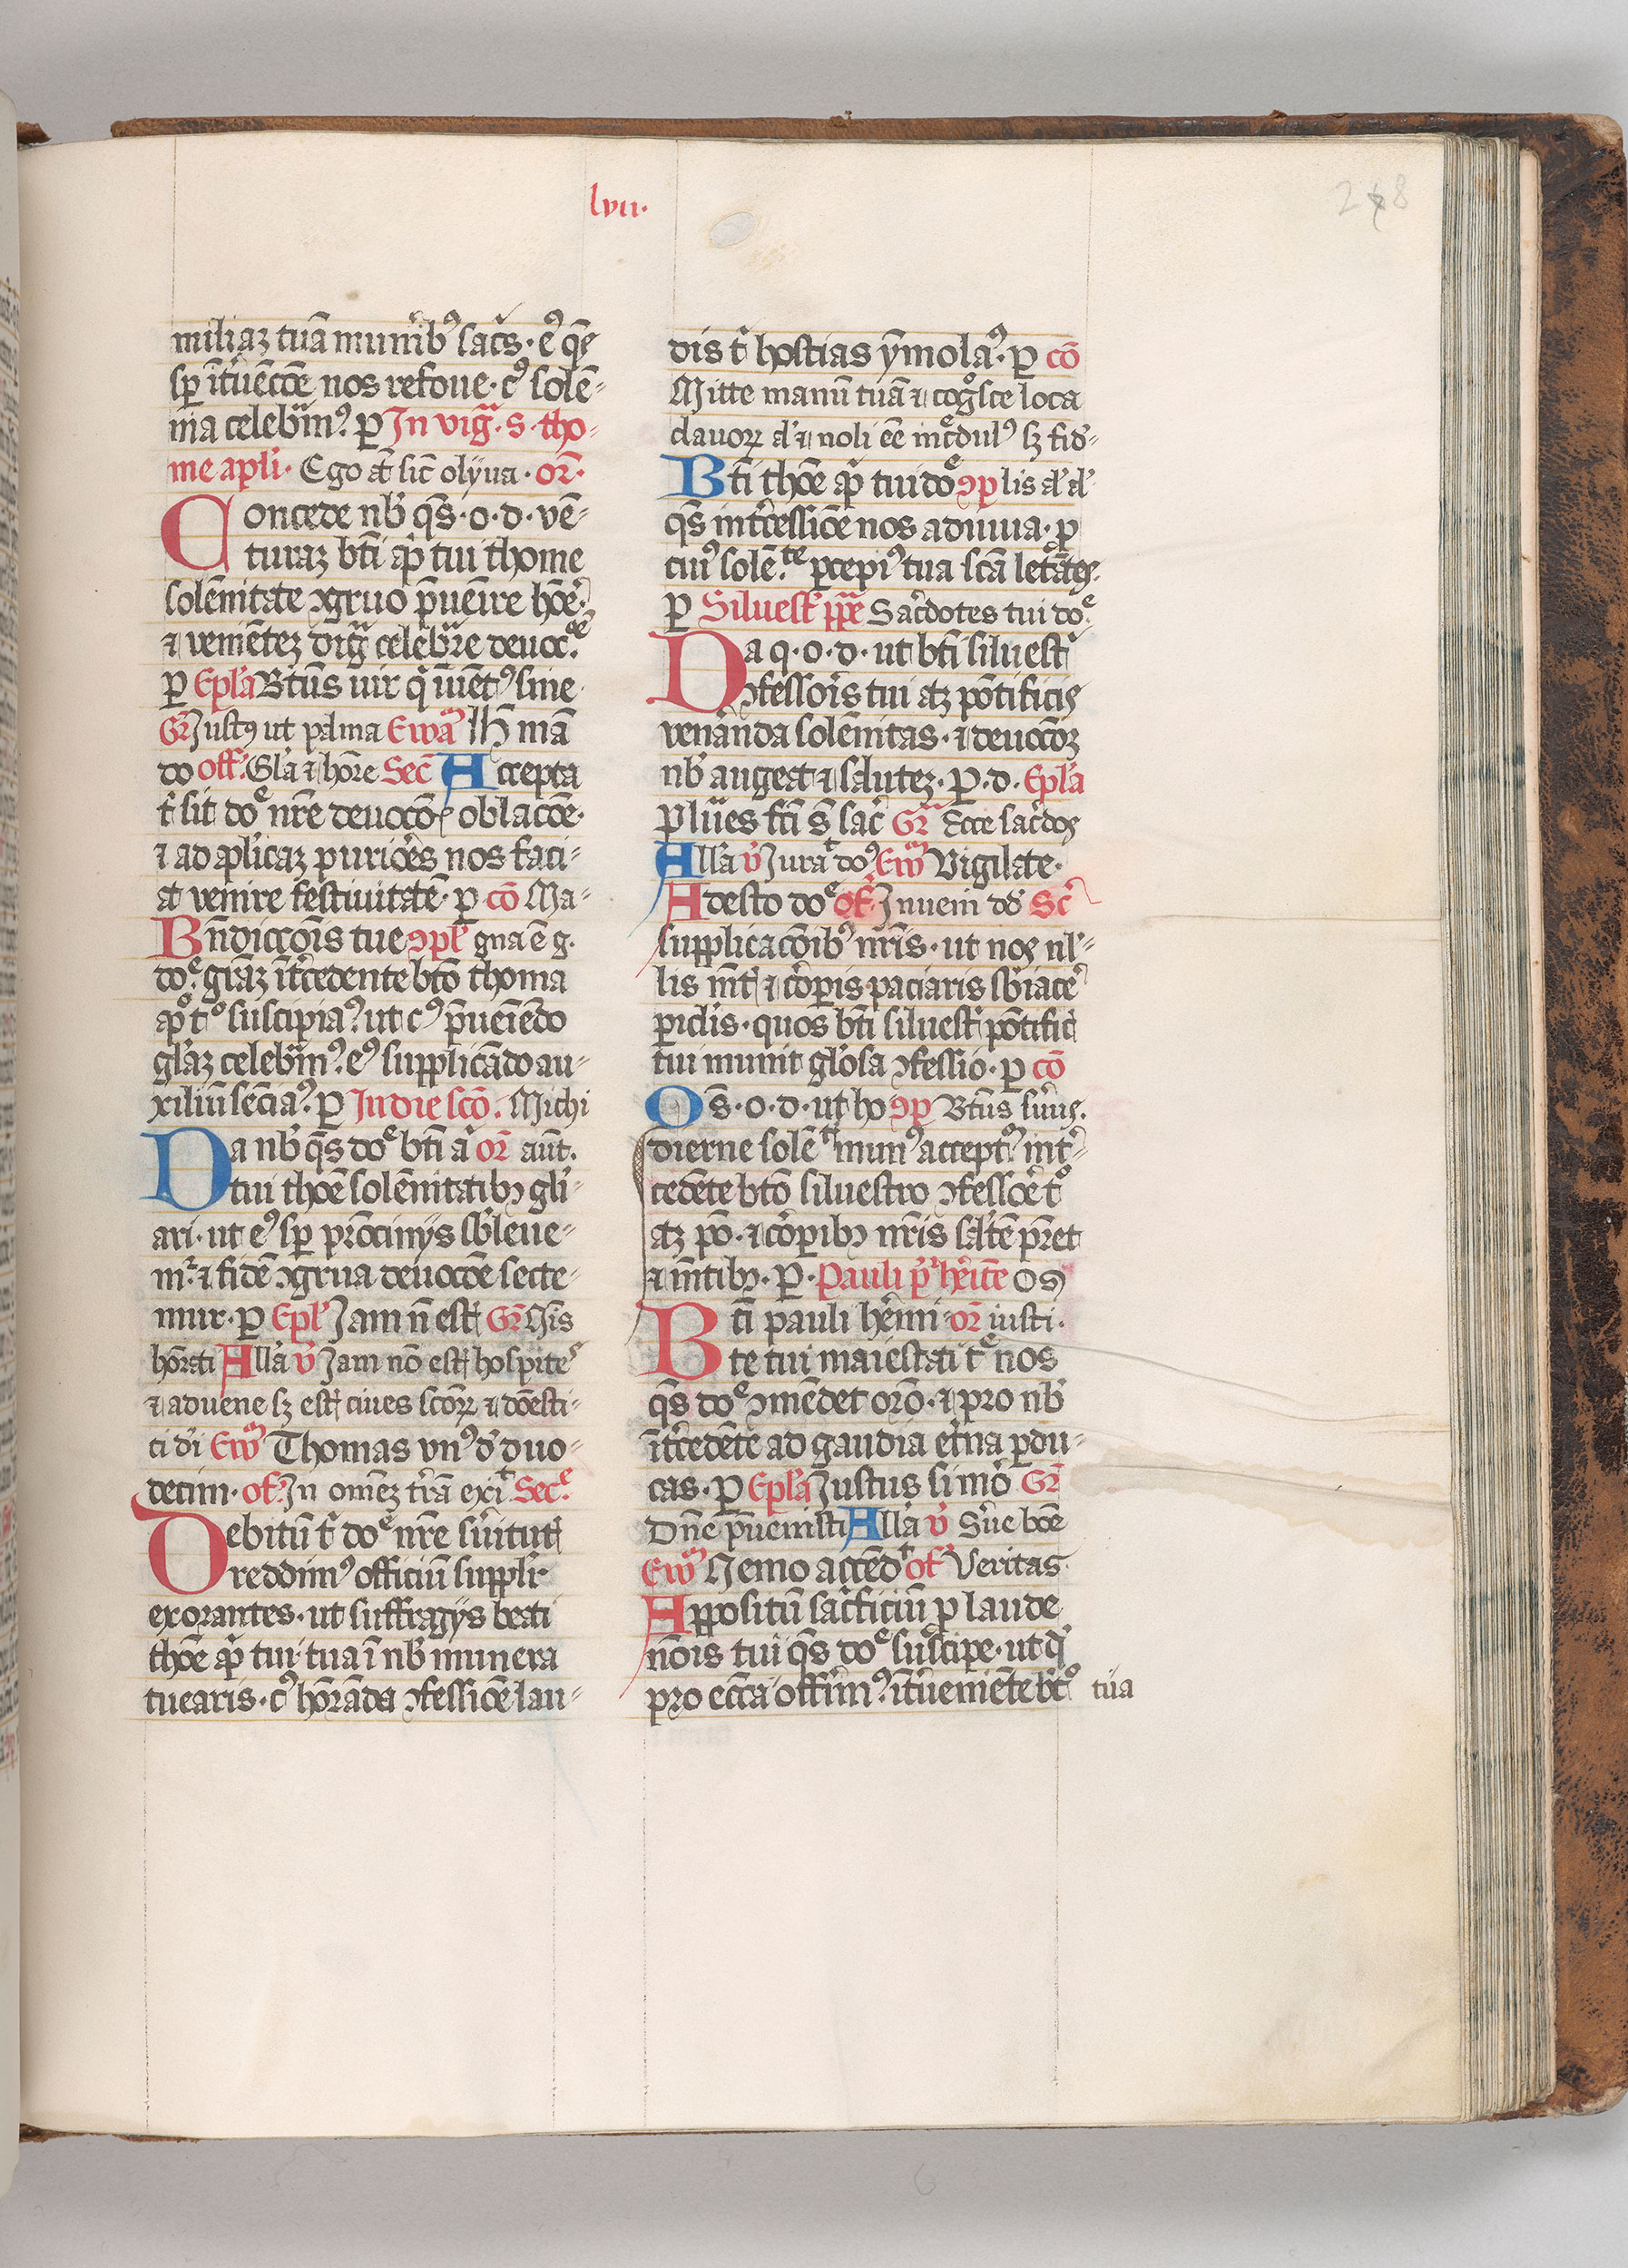 lvii.
248
miliaz tuā munib' sacīs · e' q̄e
sp̄ ītuēcōe nos refoue · c' solē-
nia celebim'? p In viḡ · s · tho-
me apli · Ego at̄ sic̄ olyua · or̄ ·
Concede nb' q̄s · o · d · vē-
turaz bt̄i ap̄ tui thome
solēnitate ꝯgruo p̄ueīre hōe
⁊ veniētez diḡ celebre deuoc̄
p Epl'a Bt̄us uir q iuēt' sine
Gr̄ Just' ut palma Ewā Ih̄ mā
do off. Gl'a ⁊ hōre Sec̄ Accepta
t' sit doe nr̄e deuocō oblacōe ·
⁊ ad aplicaz puriōes nos faci-
at venire festiuitatē · p cō Ma-
Bn̄diccōis tue ꝯpl' gna ē g.
doe graz īt̄cedente bt̄o thoma
ap̄o t̊ suscipia'? ut c' p̄ueīedo
gl'az celebim'? e' supplicādo au-
xiliū sēcia'? p In die scō. Michi
Da nb' q̄s doe bt̄i a or̄ aūt.
tui thōe solēnitatibꝫ gl'i-
ari · ut e' sp̄ pr̄ocinijs sb'leue-
m' ⁊ fidē ꝯgrua deuocōe secte-
mur · p Epl' Jam n̄ esti Gr̄ Nis
hōrati All'a v' Jam nō esti hospite
⁊ aduene sꝫ esti ciues scōꝝ ⁊ dōesti-
ci d'i Ewō Thomas vn' d' duo-
decim · of. In omēz tr̄ā exi Sece.
Debitū t' doe nr̄e suitut
reddim' officiū suppli
exorantes · ut suffragijs beati
thōe ap̄ tui tua ī nb' munera
tuearis · c' hōrāda ꝯfessiōe lau-
dis t' hostias ymola' · p cō
Mitte manū tuā ⁊ cog̊sce loca
clauoꝝ al' ⁊ noli eē incdul' sꝫ fid'-
Bt̄i thōe ap̄ tui doe ꝯp lis al' al'
q̄s int̄cessiōe nos adiuua · p
cui' solē.te p̄cepi' tua scā letātes.
p Siluest' pp̄e Sacdotes tui doe
Da q · o · d · ut bt̄i siluest
ꝯfessoris tui atꝫ pōtificis
venānda solēnitas · ⁊ deuocōꝫ
nb' augeat ⁊ salutez · P · d · Epl'a
Plues fc̄i s̄ sac Gr̄ Ecce sacdos
All'a v' Jura do' Ewō Vigilate ·
Adesto doe of Inueni dd' Sc
supplicacōib' nr̄is · ut nos nl'-
lis mt' ⁊ corpis paciaris sb'iace
piclis · quos bt̄i siluest pōtific
tui munit gl'osa ꝯfessio · p cō
Os · o · d · ut ho ꝯp Bt̄us suus.
dierne solē mun' accept' int'-
cedēte bt̄o siluestro ꝯfessōe t̊
atꝫ pō · ⁊ corpibꝫ nr̄is sal'tē p̄ret
⁊ mt̄ibꝫ · P · Pauli p' h'eīte Os
Bt̄i pauli h'emi or̄ iusti ·
te tui maiestati t nos
q̄s doe ꝯmēdet or̄o · ⁊ pro nb'
īt̄cedēte ad gaudia et'na pdu-
cas · p Epl'a Justus si mō Gr̄
Dn̄e p̄uenisti All'a v' Sue bōe
Ewō Nemo accēd of Veritas
Appositū sacficiū p laude
nōis tui q̄s doe suscipe · ut q'
pro ecc̄a offim'? īt̄ueniēte bt̊ tua